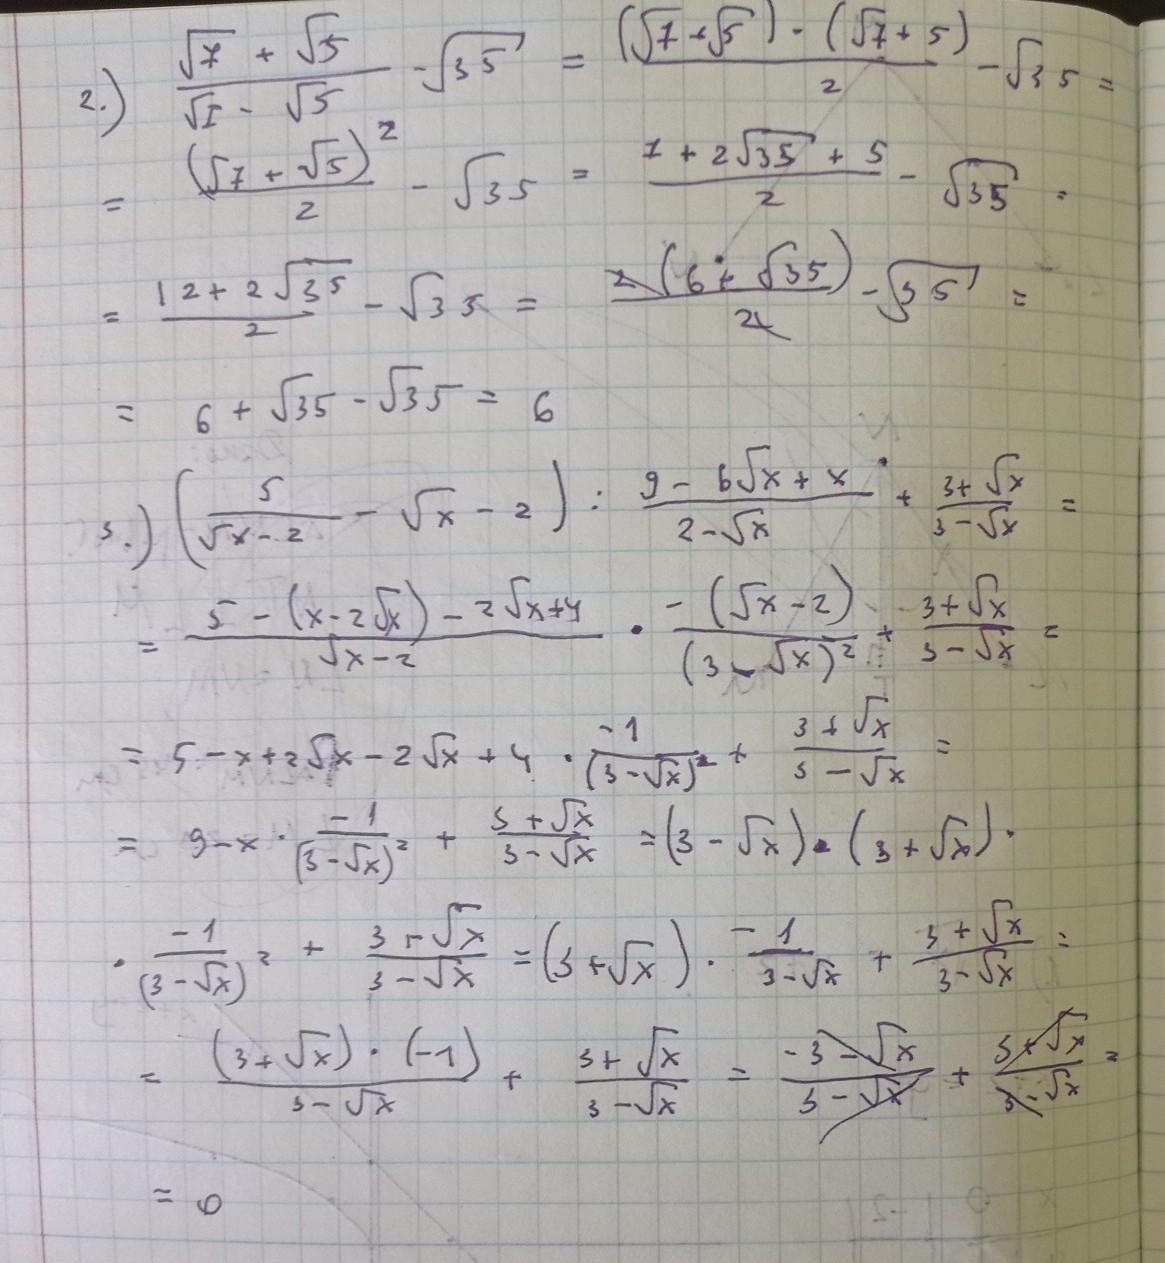 2.) (√7 + √5)/(√7 - √5) - √35 = ((√7 + √5) · (√7 + 5))/2 - √35 =
= (√7 + √5)²/2 - √35 = (7 + 2√35 + 5)/2 - √35 =
= (12 + 2√35)/2 - √35 = 2(6 + √35)/2 - √35 =
= 6 + √35 - √35 = 6
3.) (5/(√x - 2) - √x - 2) : (9 - 6√x + x)/(2 - √x) + (3 + √x)/(3 - √x) =
= (5 - (x - 2√x) - 2√x + 4)/(√x - 2) · (-(√x - 2))/(3 - √x)² + (3 + √x)/(3 - √x) =
= 5 - x + 2√x - 2√x + 4 · (-1)/(3 - √x)² + (3 + √x)/(3 - √x) =
= 9 - x · (-1)/(3 - √x)² + (3 + √x)/(3 - √x) = (3 - √x) · (3 + √x) ·
· (-1)/(3 - √x)² + (3 + √x)/(3 - √x) = (3 + √x) · (-1)/(3 - √x) + (3 + √x)/(3 - √x) =
= ((3 + √x) · (-1))/(3 - √x) + (3 + √x)/(3 - √x) = (-3 - √x)/(3 - √x) + (3 + √x)/(3 - √x) =
= 0